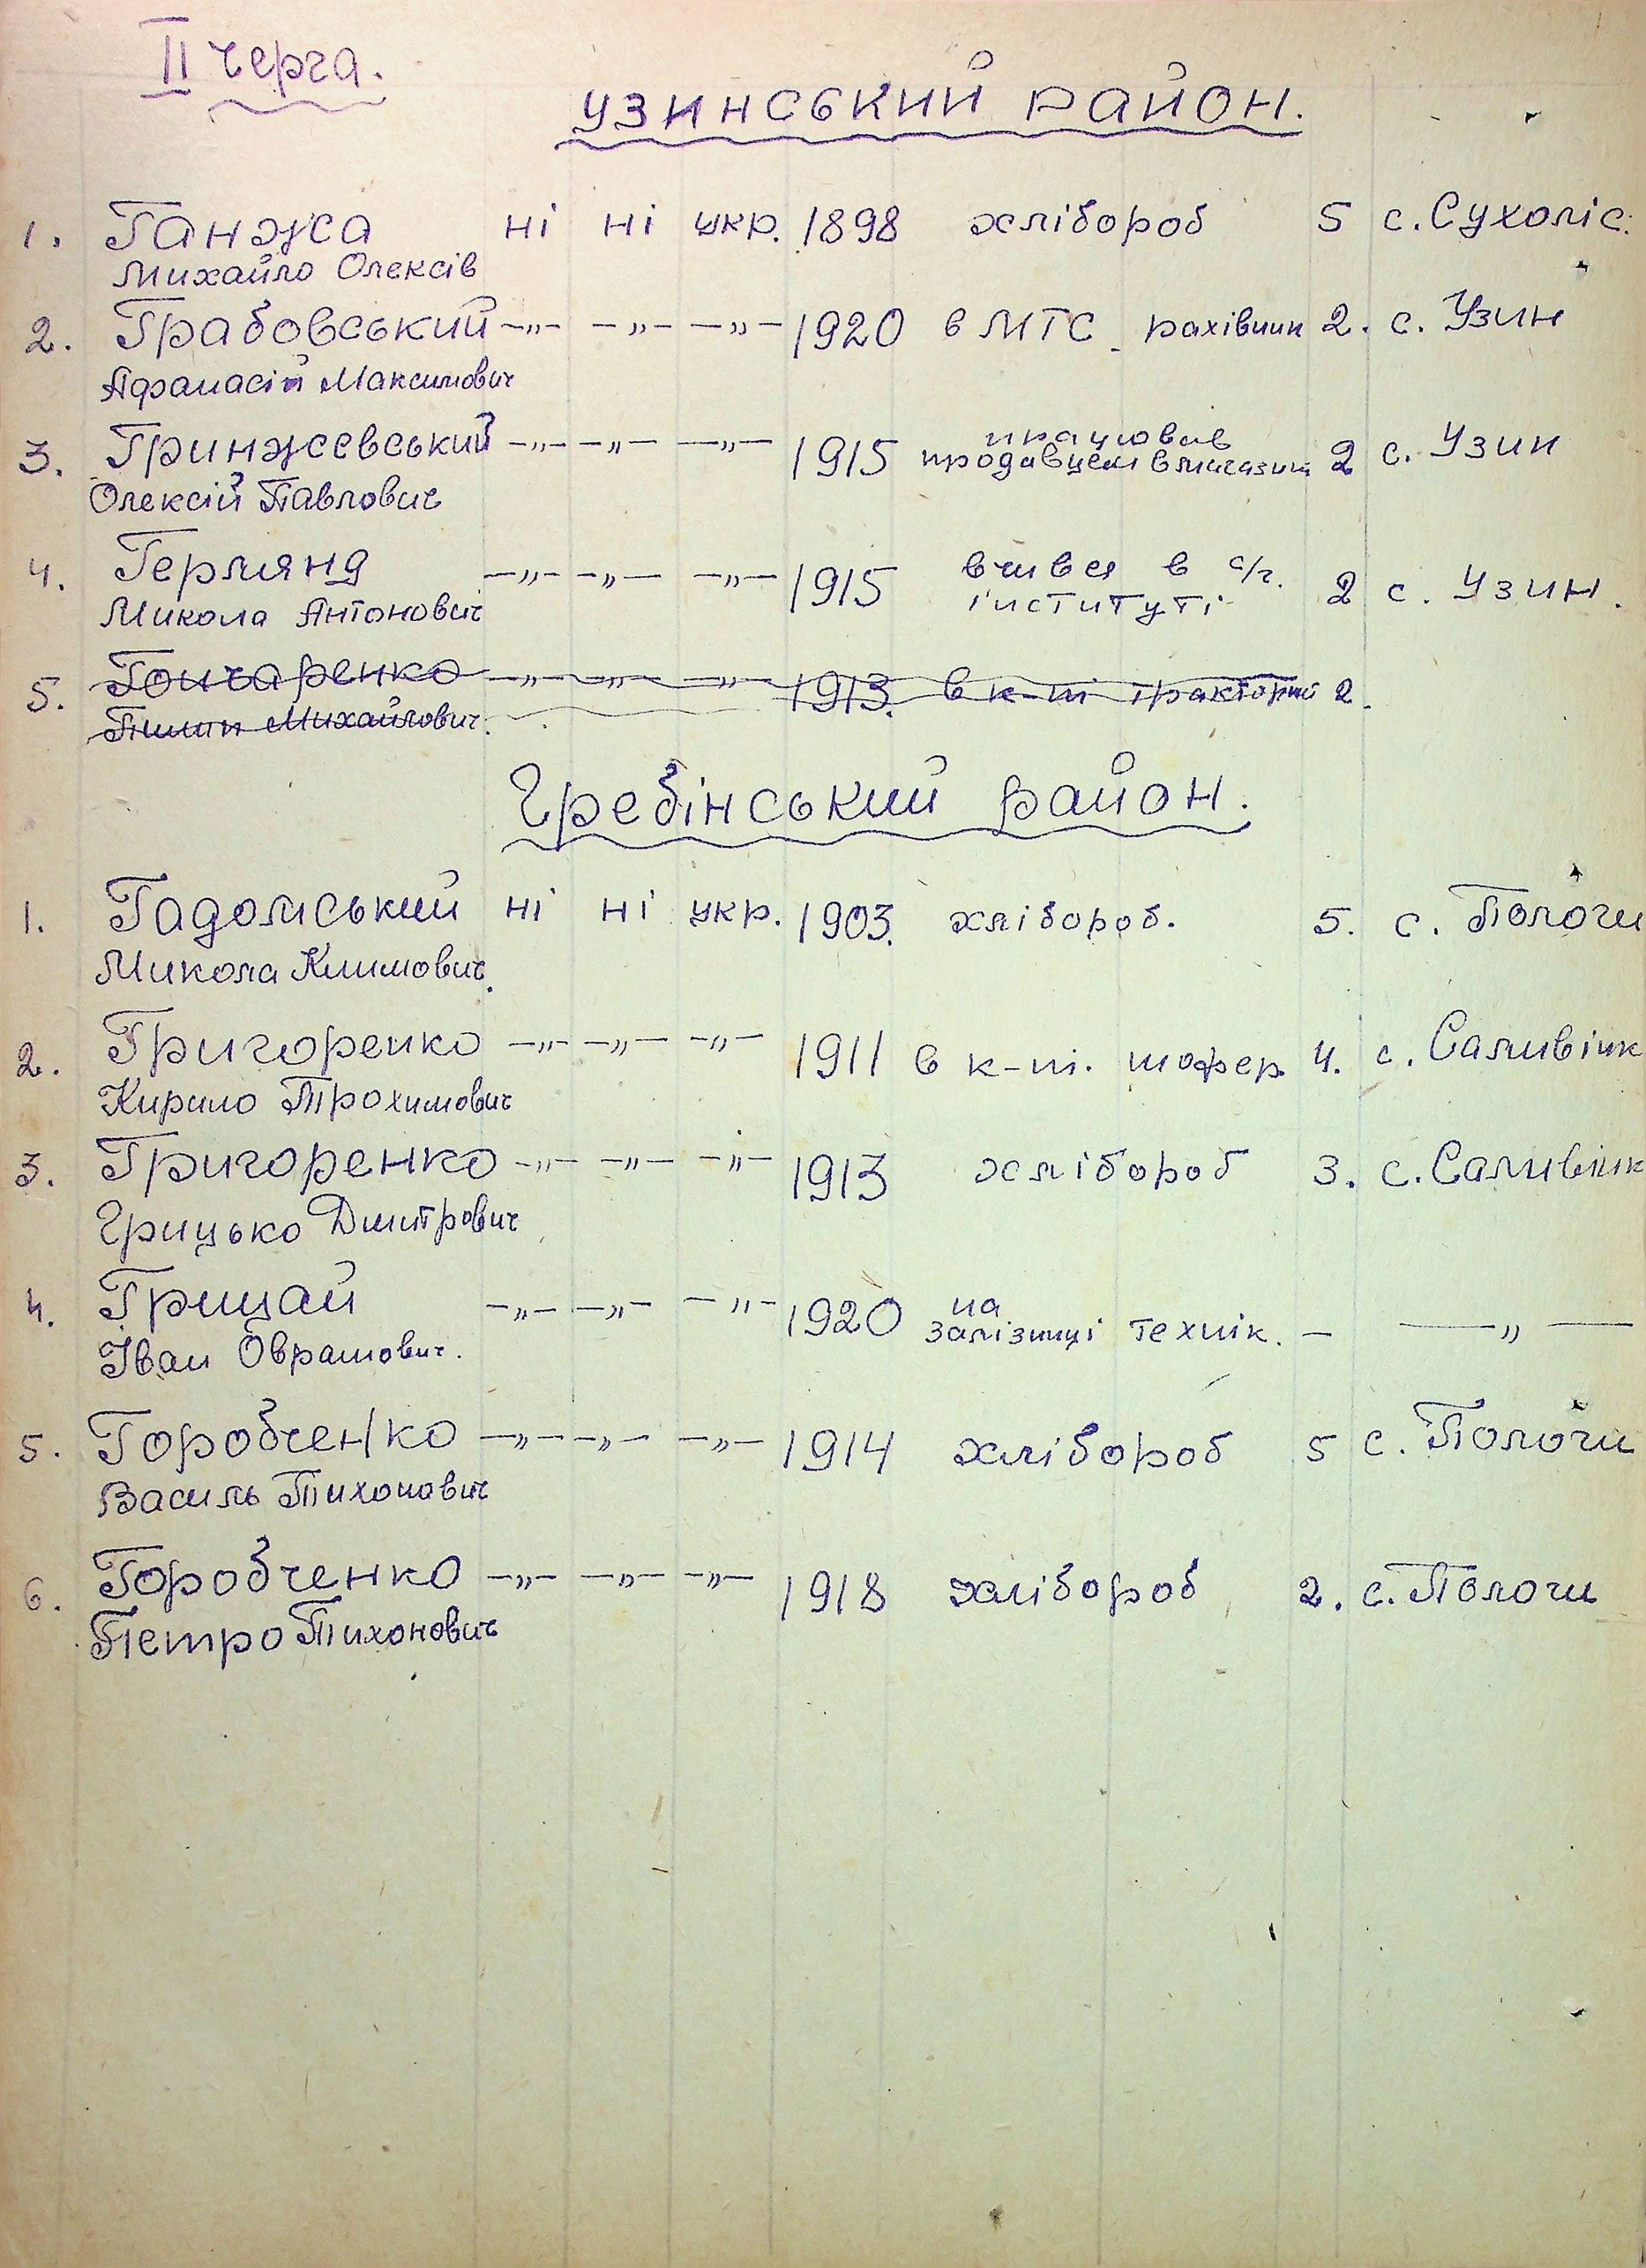 ІІ черга.
Узинський район.
1. Ганжа ні ні укр. 1898 хлібороб 5 с. Сухоліс.
Михайло Олексів
2. Грабовський —„— —„— —„— 1920 в МТС рахівник 2. с. Узин
Афанасій Максимович
3. Гринжевський —„— —„— —„— 1915 працював продавцем в магазині 2 с. Узин
Олексій Павлович
4. Гермянд —„— —„— —„— 1915 вчився в с/г. інституті 2 с. Узин.
Микола Антонович
5. Гончаренко —„— —„— —„— 1913. в к-пі тракторий 2.
Пилип Михайлович.
Гребінський район.
1. Гадомський ні ні укр. 1903. хлібороб. 5. с. Пологи
Микола Климович.
2. Григоренко —„— —„— —„— 1911 в к-пі. шофер 4. с. Саливінк
Кирило Трохимович
3. Григоренко —„— —„— —„— 1913 хлібороб 3. с. Саливінк
Грицько Дмитрович
4. Грицай —„— —„— —„— 1920 на залізниці технік. — —„—
Іван Оврамович.
5. Горобченко —„— —„— —„— 1914 хлібороб 5 с. Пологи
Василь Тихонович
6. Горобченко —„— —„— —„— 1918 хлібороб 2. с. Пологи
Петро Тихонович